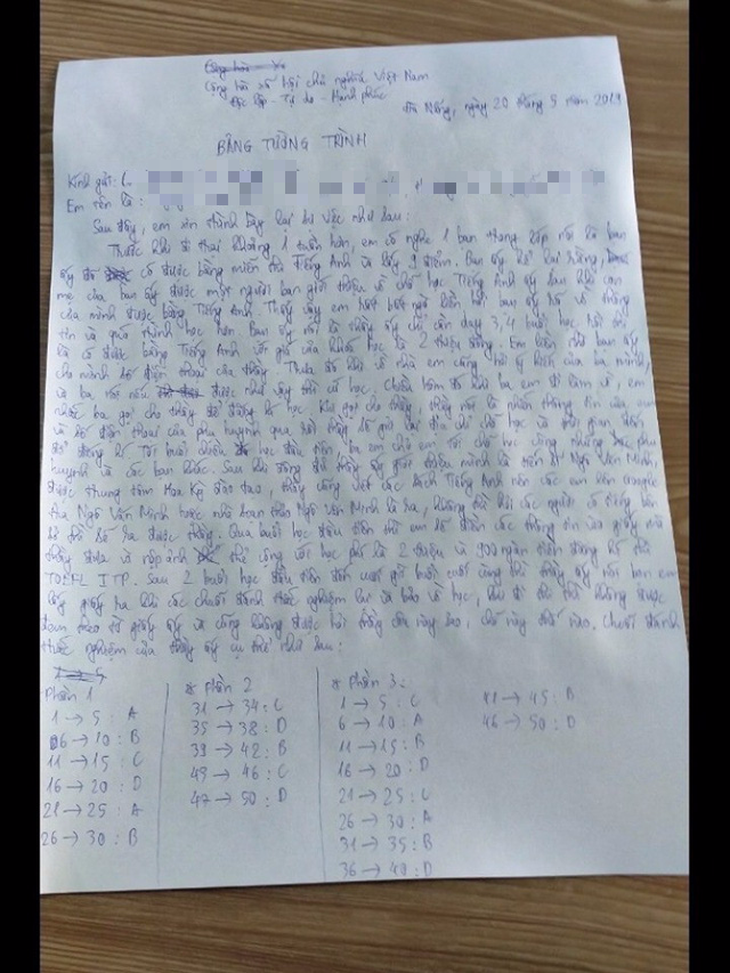 Cộng hòa xã hội chủ nghĩa Việt Nam
Độc lập - Tự do - Hạnh phúc
Đà Nẵng, ngày 20 tháng 5 năm 2019
BẢNG TƯỜNG TRÌNH
Kính gửi:
Em tên là:
Sau đây, em xin trình bày lại sự việc như sau:
Trước khi đi thi khoảng 1 tuần hơn, em có nghe 1 bạn trong lớp nói là bạn
ấy có được bằng miễn thi Tiếng Anh và lấy 9 điểm. Bạn ấy kể lại rằng,
mẹ của bạn ấy được một người bạn giới thiệu về chỗ học Tiếng Anh ấy sau khi con
của mình được bằng Tiếng Anh. Thấy vậy em hơi bất ngờ liền hỏi bạn ấy rõ về thông
tin và quá trình học hơn. Bạn ấy nói là thầy ấy chỉ cần dạy 3, 4 buổi học rồi thi
là có được bằng Tiếng Anh với giá của khóa học là 2 triệu đồng. Em liền nhờ bạn ấy
cho mình số điện thoại của thầy. Trưa đó khi về nhà em cũng hỏi ý kiến của ba mình,
và ba nói nếu được như vậy thì cứ học. Chiều hôm đó khi ba em đi làm về, em
nhắc ba gọi cho thầy để đăng kí học. Khi gọi cho thầy, thầy nói là nhắn thông tin của em
và số điện thoại của phụ huynh qua rồi thầy sẽ gửi lại địa chỉ chỗ học và thời gian đến
để đăng kí. Tới buổi chiều học đầu tiên, ba em chở em tới chỗ học cùng những phụ
huynh và các bạn khác. Sau khi xong thì thầy ấy giới thiệu mình là tiến sĩ Ngô Văn Minh,
được trung tâm Hoa Kỳ đào tạo, thầy cũng viết các sách Tiếng Anh nên các em lên Google
tra Ngô Văn Minh trước nhà toán trần Ngô Văn Minh là ra, không thì hỏi các người có tiếng bên
sở thì sẽ ra được thầy. Qua buổi học đầu tiên thì em sẽ điền các thông tin vào giấy mà
thầy đưa và nộp ảnh thẻ cộng với học phí là 2 triệu và 900 ngàn tiền đăng kí thi
TOEFL ITP. Sau 2 buổi học đầu tiên đến cuối giờ buổi cuối cùng thì thầy ấy nói bọn em
lấy giấy ra khi các chuỗi đánh trắc nghiệm lại và bảo về học, khi đi thi thì không được
đem theo tờ giấy ấy và cũng không được hỏi thầy câu này sao, chỗ này thế nào. Chuỗi đánh
trắc nghiệm của thầy ấy cụ thể như sau:
Phần 1
1 → 5 : A
6 → 10 : B
11 → 15 : C
16 → 20 : D
21 → 25 : A
26 → 30 : B
* Phần 2
31 → 34 : C
35 → 38 : D
39 → 42 : B
43 → 46 : C
47 → 50 : D
* Phần 3 :
1 → 5 : C
6 → 10 : A
11 → 15 : B
16 → 20 : D
21 → 25 : C
26 → 30 : A
31 → 35 : B
36 → 40 : D
41 → 45 : B
46 → 50 : D